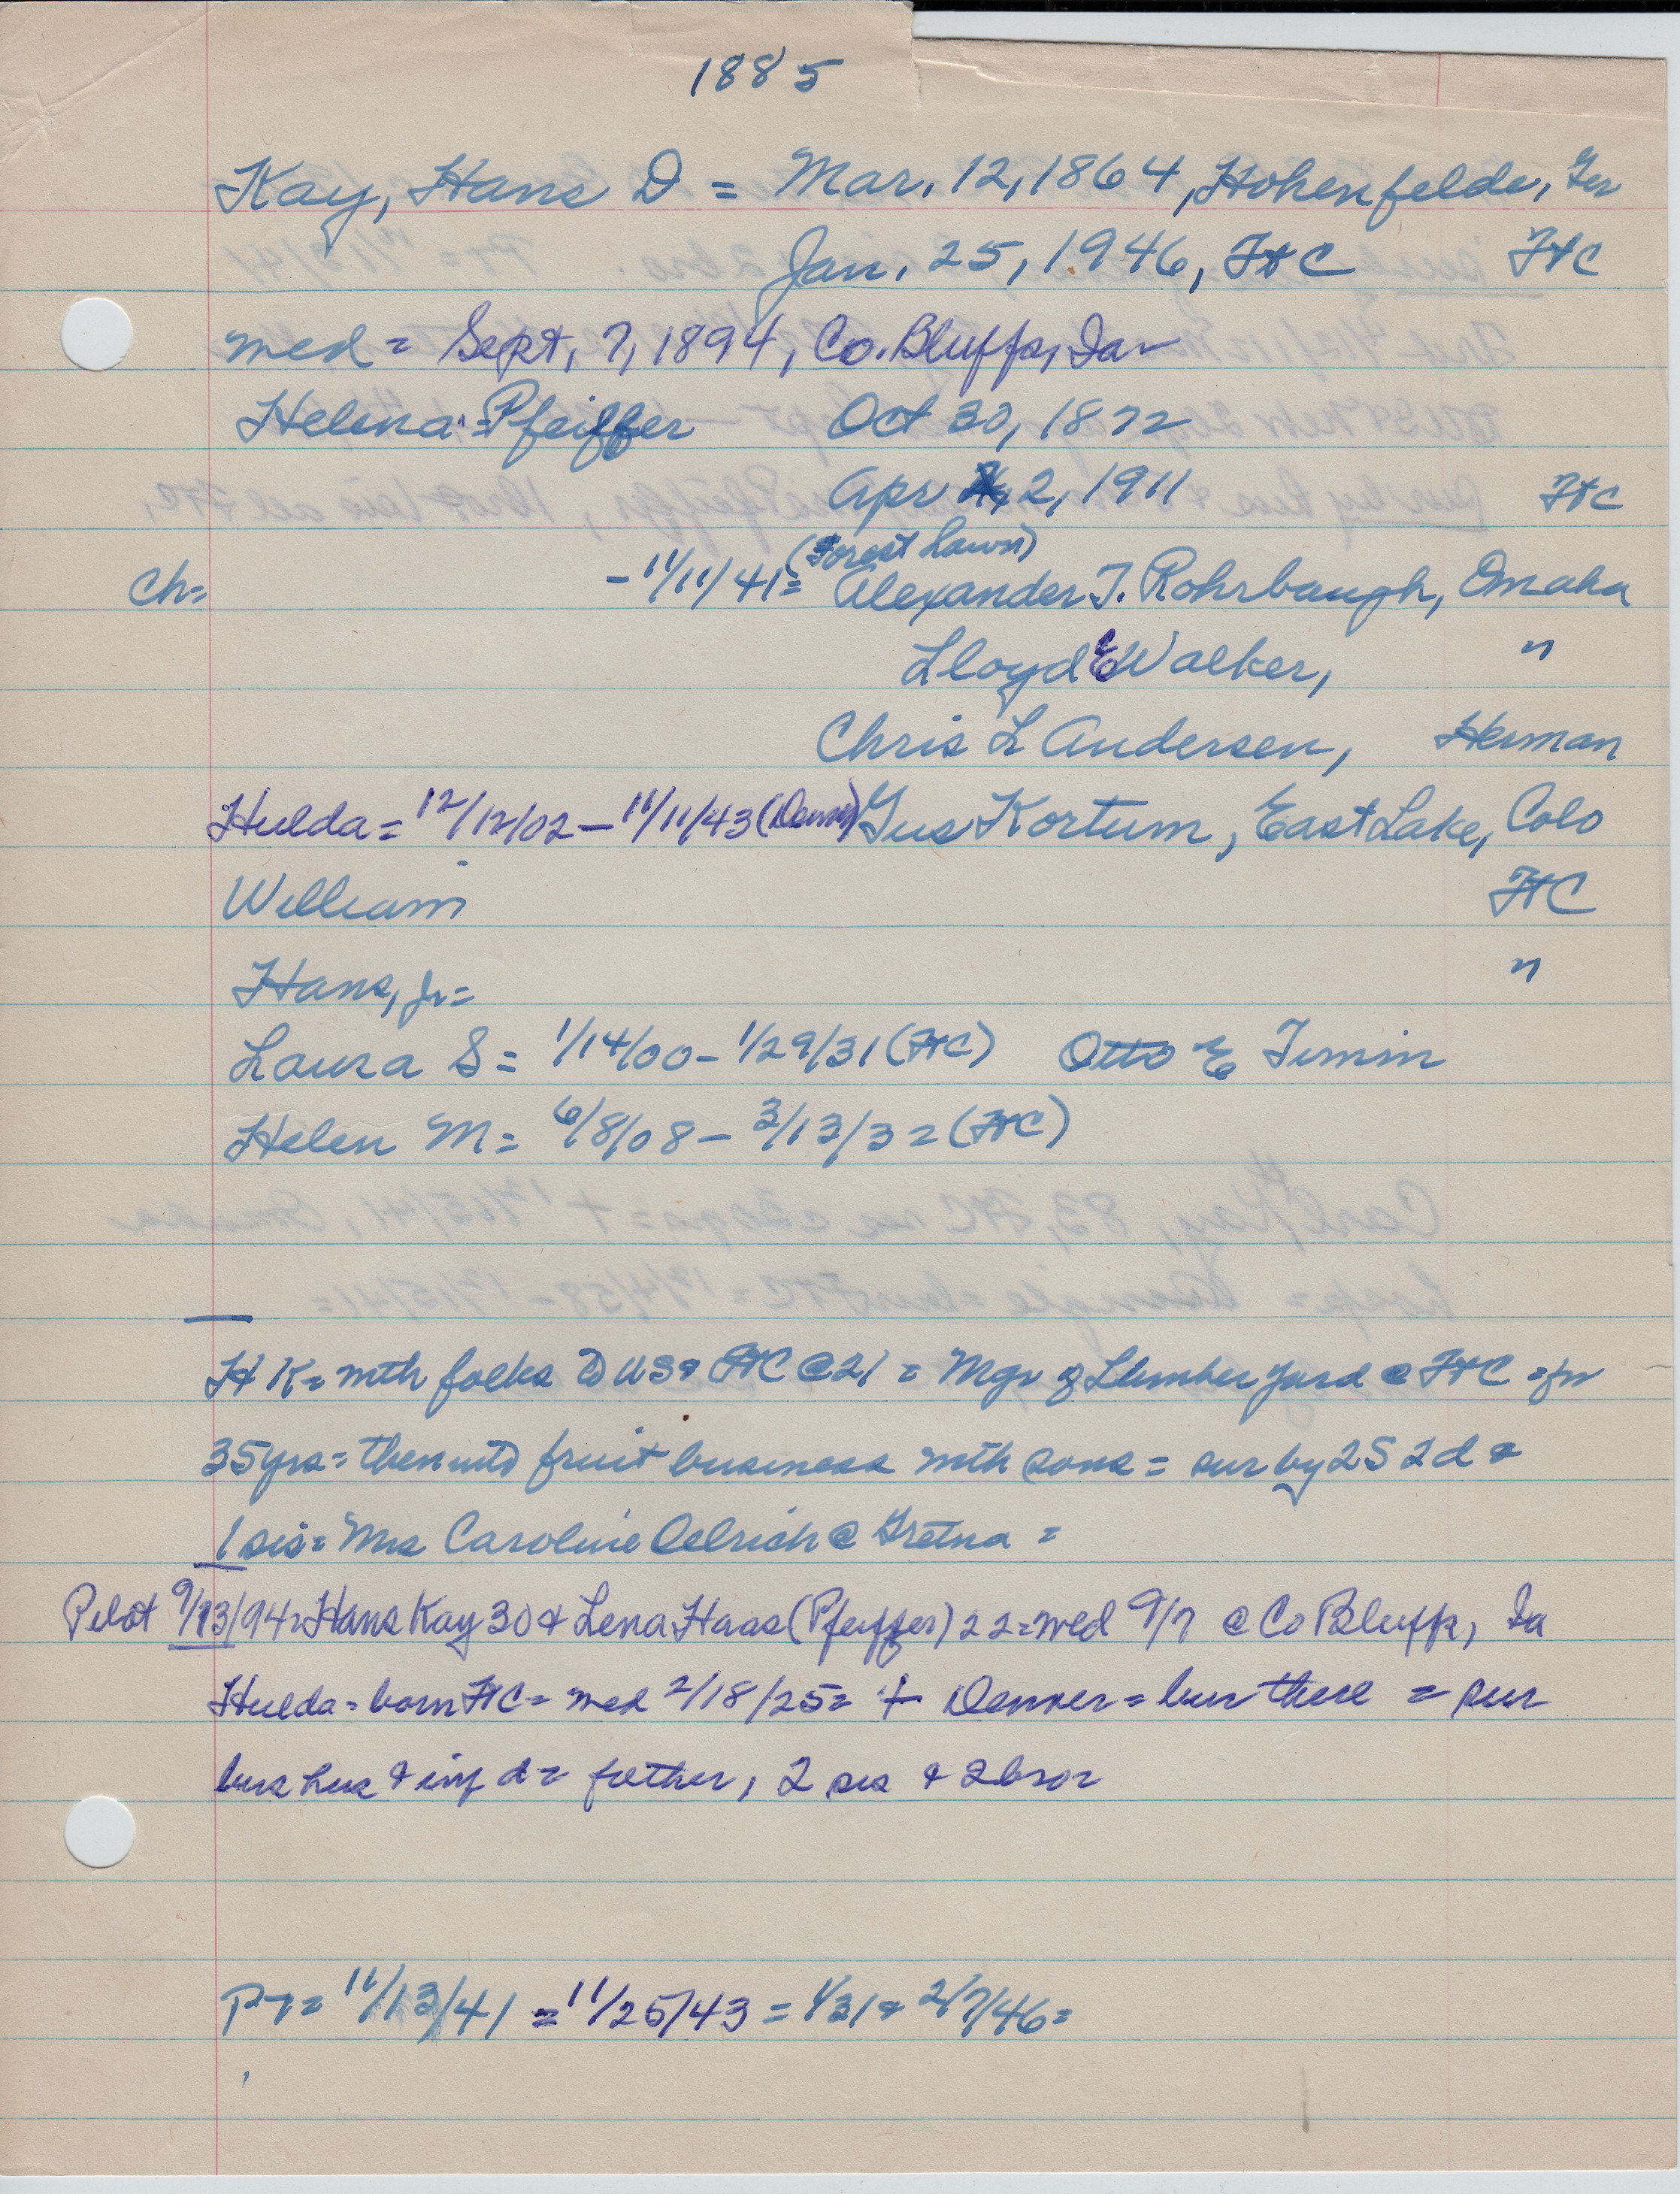 1885
Kay, Hans D = Mar. 12, 1864, Hohenfelde, Ger
Jan. 25, 1946, FtC FtC
med = Sept. 7, 1894, Co. Bluffs, Ia
Helena Pfeiffer Oct 30, 1872
Apr 2, 1911 FtC
(Forest Lawn)
Ch= - 11/11/41= Alexander T. Rohrbaugh, Omaha
Lloyd E Walker, "
Chris L Andersen, Herman
Hulda = 12/12/02 - 11/11/43 (Denv) Gus Kortum, East Lake, Colo
William FtC
Hans, Jr= "
Laura S = 1/14/00 - 1/29/31 (FtC) Otto E Timm
Helen M = 6/8/08 - 3/13/32 (FtC)
H K= with folks to US & FtC @ 21 = Mgr of Lumber yard @ FtC = for
35 yrs = then into fruit business with sons = sur by 2S 2d &
1 sis = Mrs Caroline Oelrich @ Gretna =
Pilot 9/13/94= Hans Kay 30 & Lena Haas (Pfeiffer) 22 = wed 9/7 @ Co Bluffs, Ia
Hulda = born FtC = med 2/18/25= + Denver = bur there = sur
hus & inf d = father, 2 sis & 2 bro=
PT= 11/13/41 = 11/25/43 = 1/31 & 2/7/46=